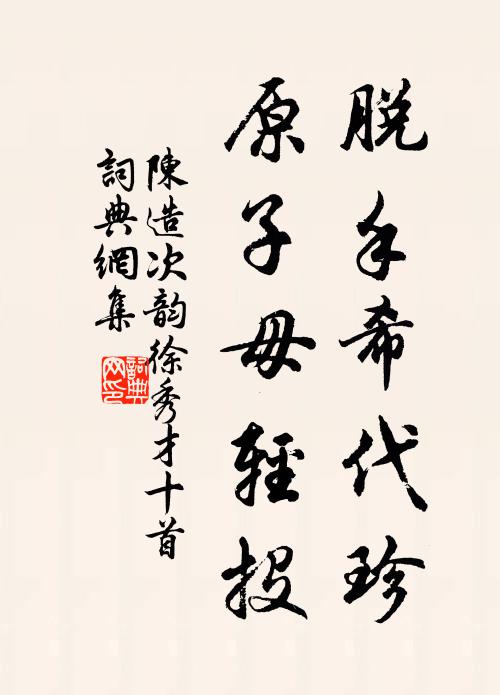 脱手希代珍
原子毋輕投
陳造次韵徐秀才十首
詞典網集
詞典网印